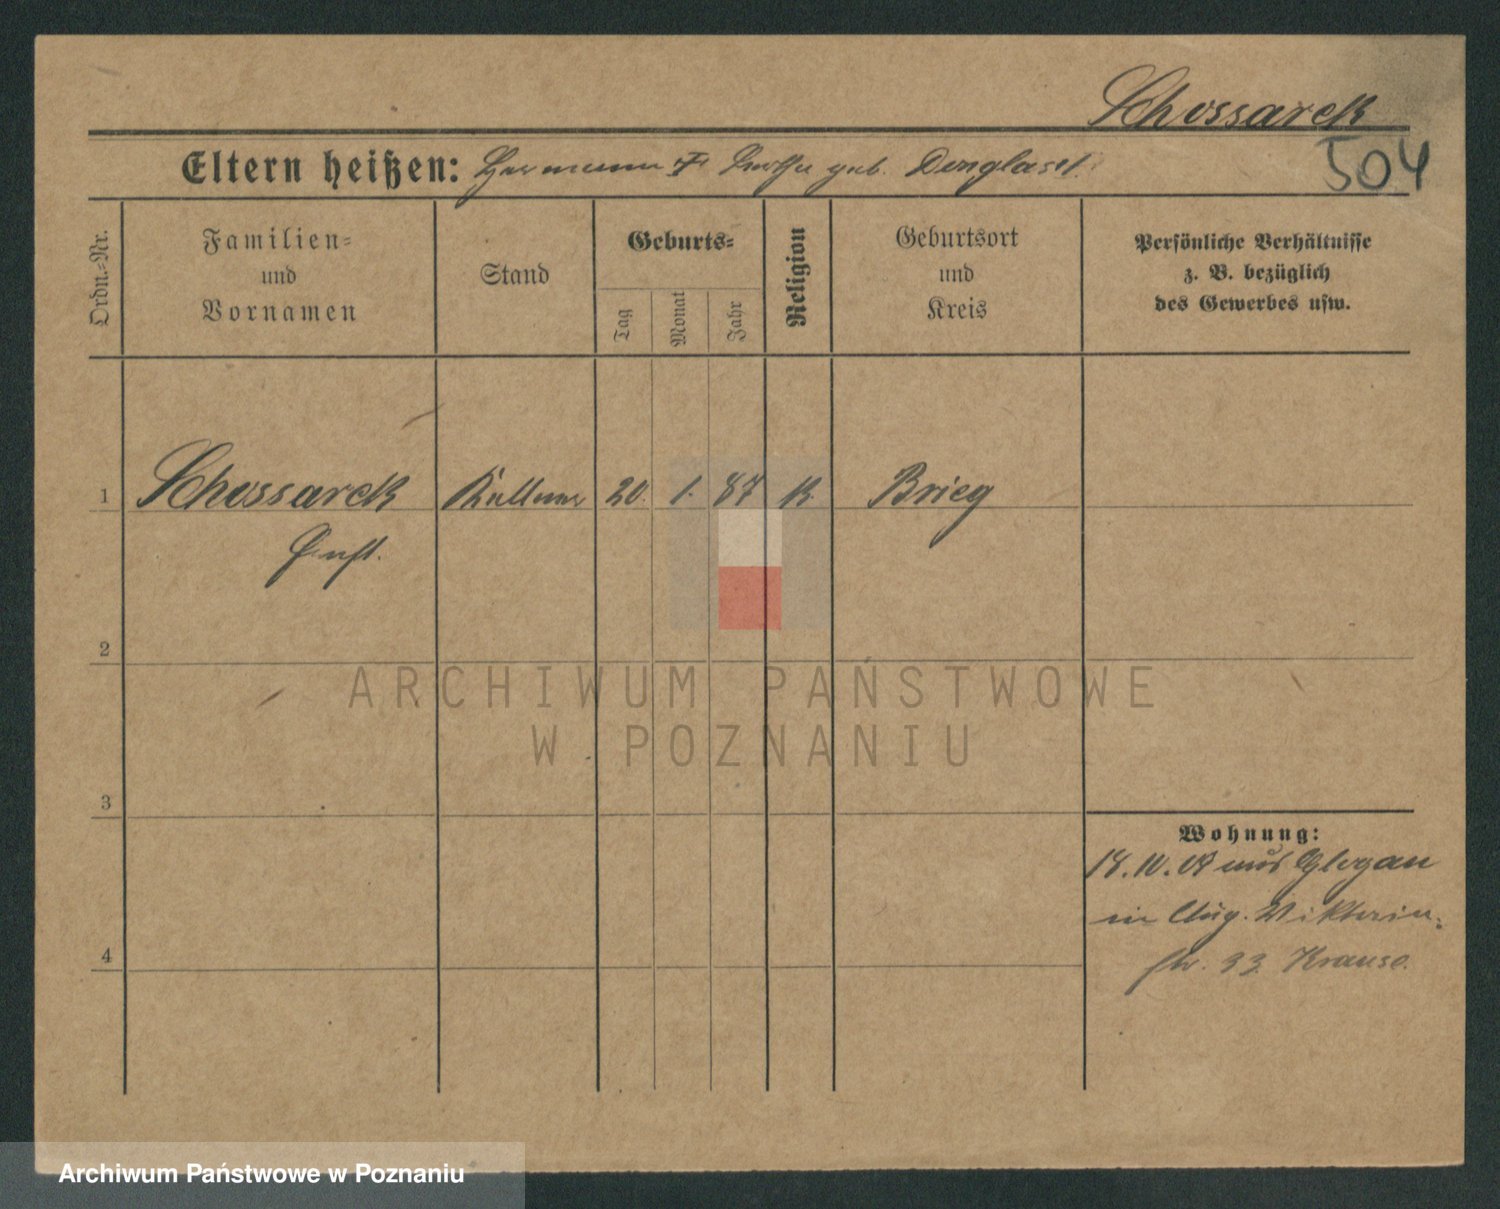 Schossarek
504
Eltern heißen: Hermann geb.
Ordn.=Nr.
Familien=
und
Vornamen
Stand
Geburts=
Tag
Monat
Jahr
Religion
Geburtsort
und
Kreis
Persönliche Verhältnisse
z. B. bezüglich
des Gewerbes usw.
1
Schossarek
Kellner
20.
1.
87
K.
Brieg
2
3
4
Wohnung:
18.10.08 aus Glogau
in Aug. Viktoria=
str. 33 Krause.
ARCHIWUM PAŃSTWOWE
W POZNANIU
Archiwum Państwowe w Poznaniu